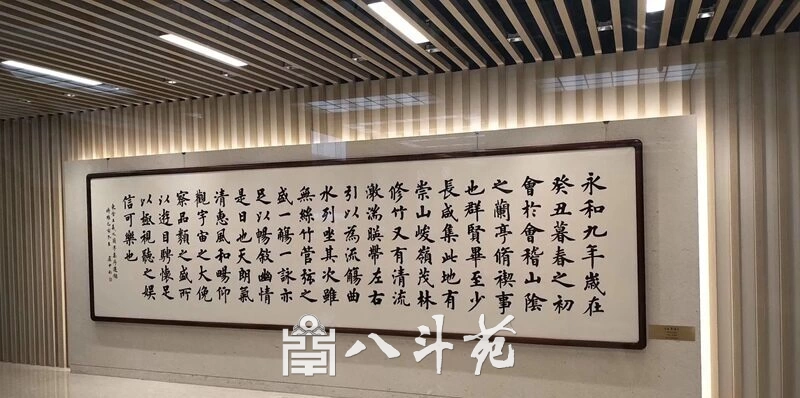 永和九年歲在
癸丑暮春之初
會於會稽山陰
之蘭亭脩禊事
也群賢畢至少
長咸集此地有
崇山峻嶺茂林
修竹又有清流
激湍暎帶左右
引以為流觴曲
水列坐其次雖
無絲竹管弦之
盛一觴一詠亦
足以暢敘幽情
是日也天朗氣
清惠風和暢仰
觀宇宙之大俛
察品類之盛所
以遊目騁懷足
以極視聽之娛
信可樂也
八斗苑